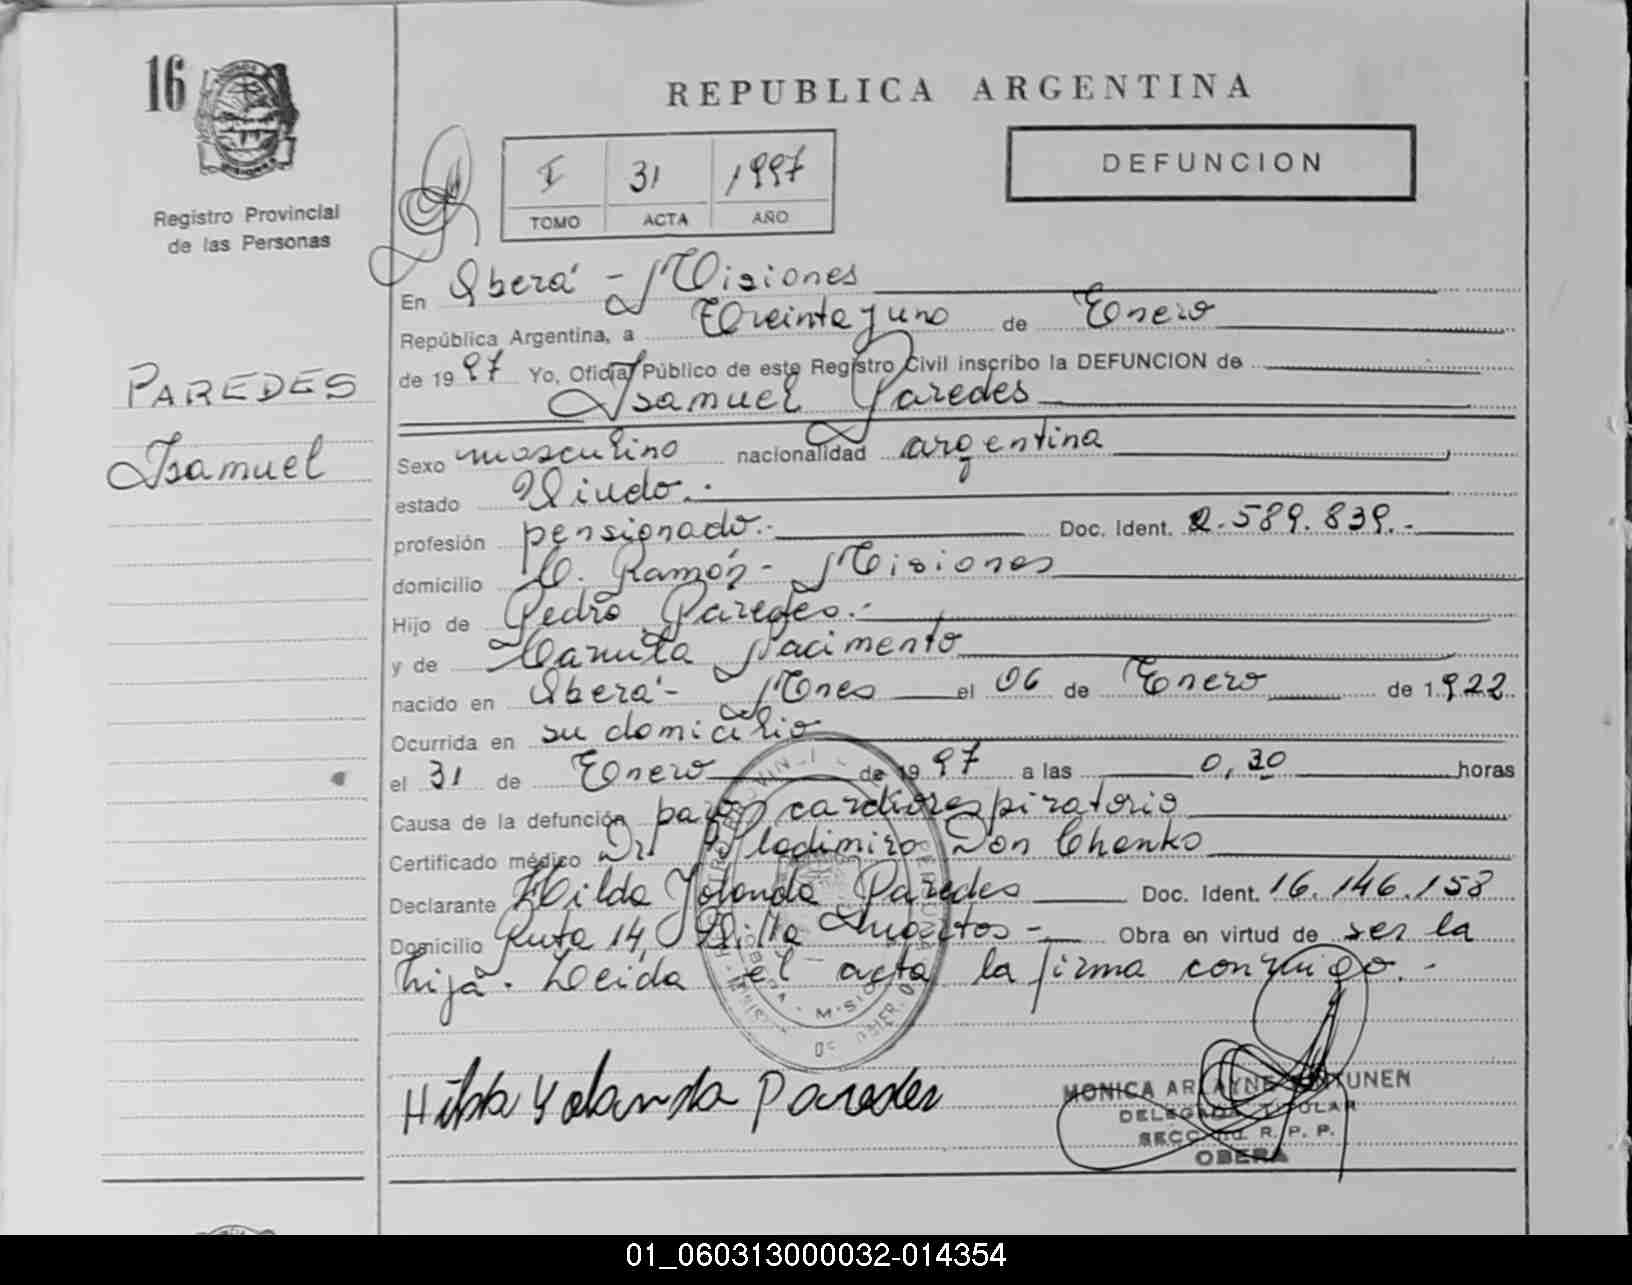 16
REPUBLICA ARGENTINA
DEFUNCION
I 31 1997
TOMO ACTA AÑO
Registro Provincial
de las Personas
PAREDES
Isamuel
En Oberá - Misiones
República Argentina, a Treinta y uno de Enero
de 1997 Yo, Oficial Público de este Registro Civil inscribo la DEFUNCION de
Isamuel Paredes
Sexo masculino nacionalidad argentina
estado Viudo.-
profesión pensionado.- Doc. Ident. 2.589.839.-
domicilio C. Ramón - Misiones
Hijo de Pedro Paredes.-
y de Nacimento
nacido en Oberá - Mnes el 06 de Enero de 1.922
Ocurrida en su domicilio
el 31 de Enero de 1997 a las 0,30 horas
Causa de la defunción paro cardiorespiratorio
Certificado médico Dr Vladimiro Don Chenko
Declarante Hilda Yolanda Paredes Doc. Ident. 16.146.158
Domicilio Ruta 14, Villa - Obra en virtud de ser la
hija. Leida el acta la firma conmigo.-
Hilda Yolanda Paredes
MONICA
DELEGADA TITULAR
SECC. R. P. P.
OBERA
01_060313000032-014354